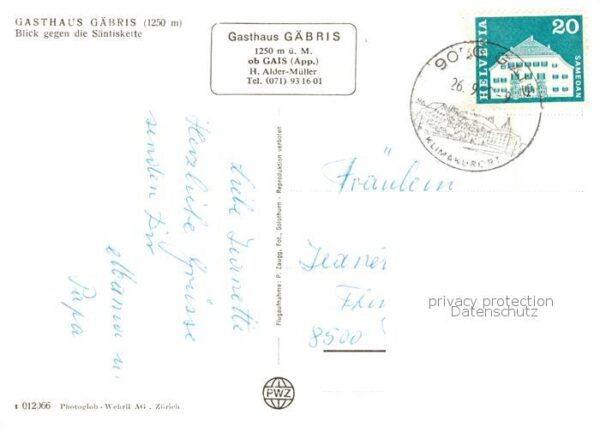 GASTHAUS GÄBRIS (1250 m)
Blick gegen die Säntiskette
Gasthaus GÄBRIS
1250 m ü. M.
ob GAIS (App.)
H. Alder-Müller
Tel. (071) 93 16 01
HELVETIA
20
SAMEDAN
26. 9.
KLIMAKURORT
Herzliche Grüsse
senden Dir
Mama u.
Papa
Flugaufnahme: P. Zaugg, Fot., Solothurn - Reproduktion verboten
Fräulein
8500
privacy protection
Datenschutz
PWZ
Photoglob-Wehrli AG . Zürich